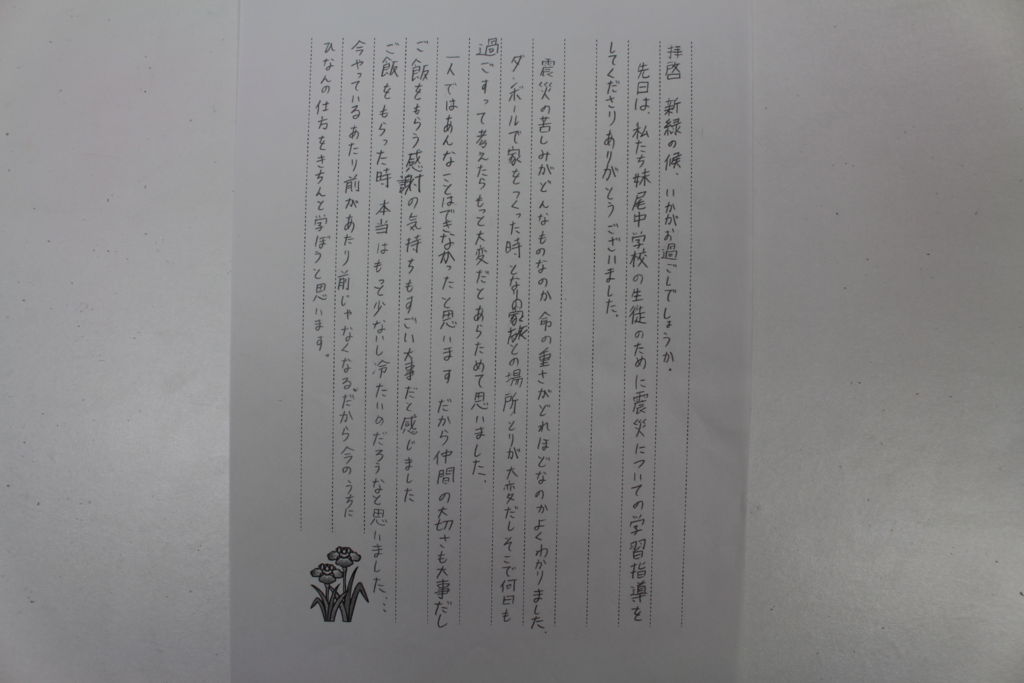 拝啓　新緑の候、いかがお過ごしでしょうか。
先日は、私たち妹尾中学校の生徒のために震災についての学習指導を
してくださりありがとうございました。
震災の苦しみがどんなものなのか命の重さがどれほどなのかよくわかりました。
ダンボールで家をつくった時となりの家族との場所とりが大変だしそこで何日も
過ごすって考えたらもって大変だとあらためて思いました。
一人ではあんなことはできなかったと思います　だから仲間の大切さも大事だし
ご飯をもらう感謝の気持ちもすごい大事だと感じました
ご飯をもらった時、本当はもっと少ないし冷たいのだろうなと思いました…
今やっているあたり前があたり前じゃなくなる。だから今のうちに
ひなんの仕方をきちんと学ぼうと思います。